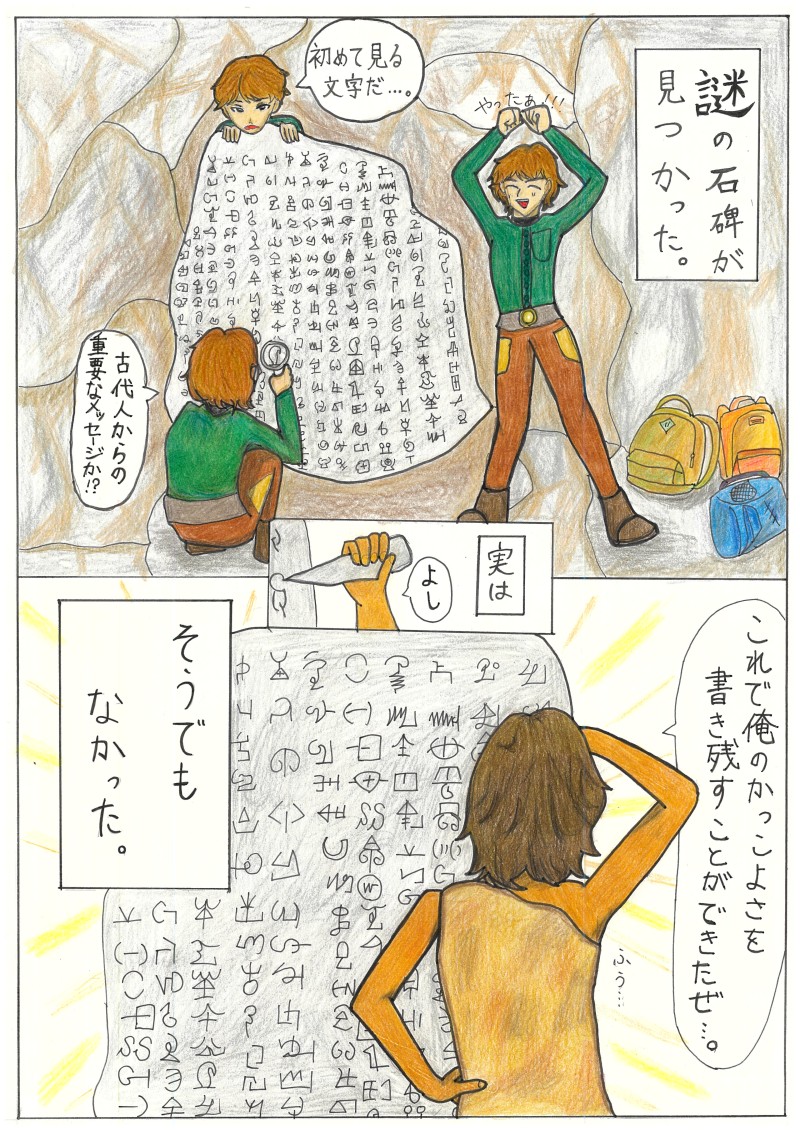 謎の石碑が
見つかった。
やったぁ!!!
初めて見る
文字だ…。
古代人からの
重要なメッセージか!?
実は
よし
これで俺のかっこよさを
書き残すことができたぜ…。
ふぅ…
そうでも
なかった。